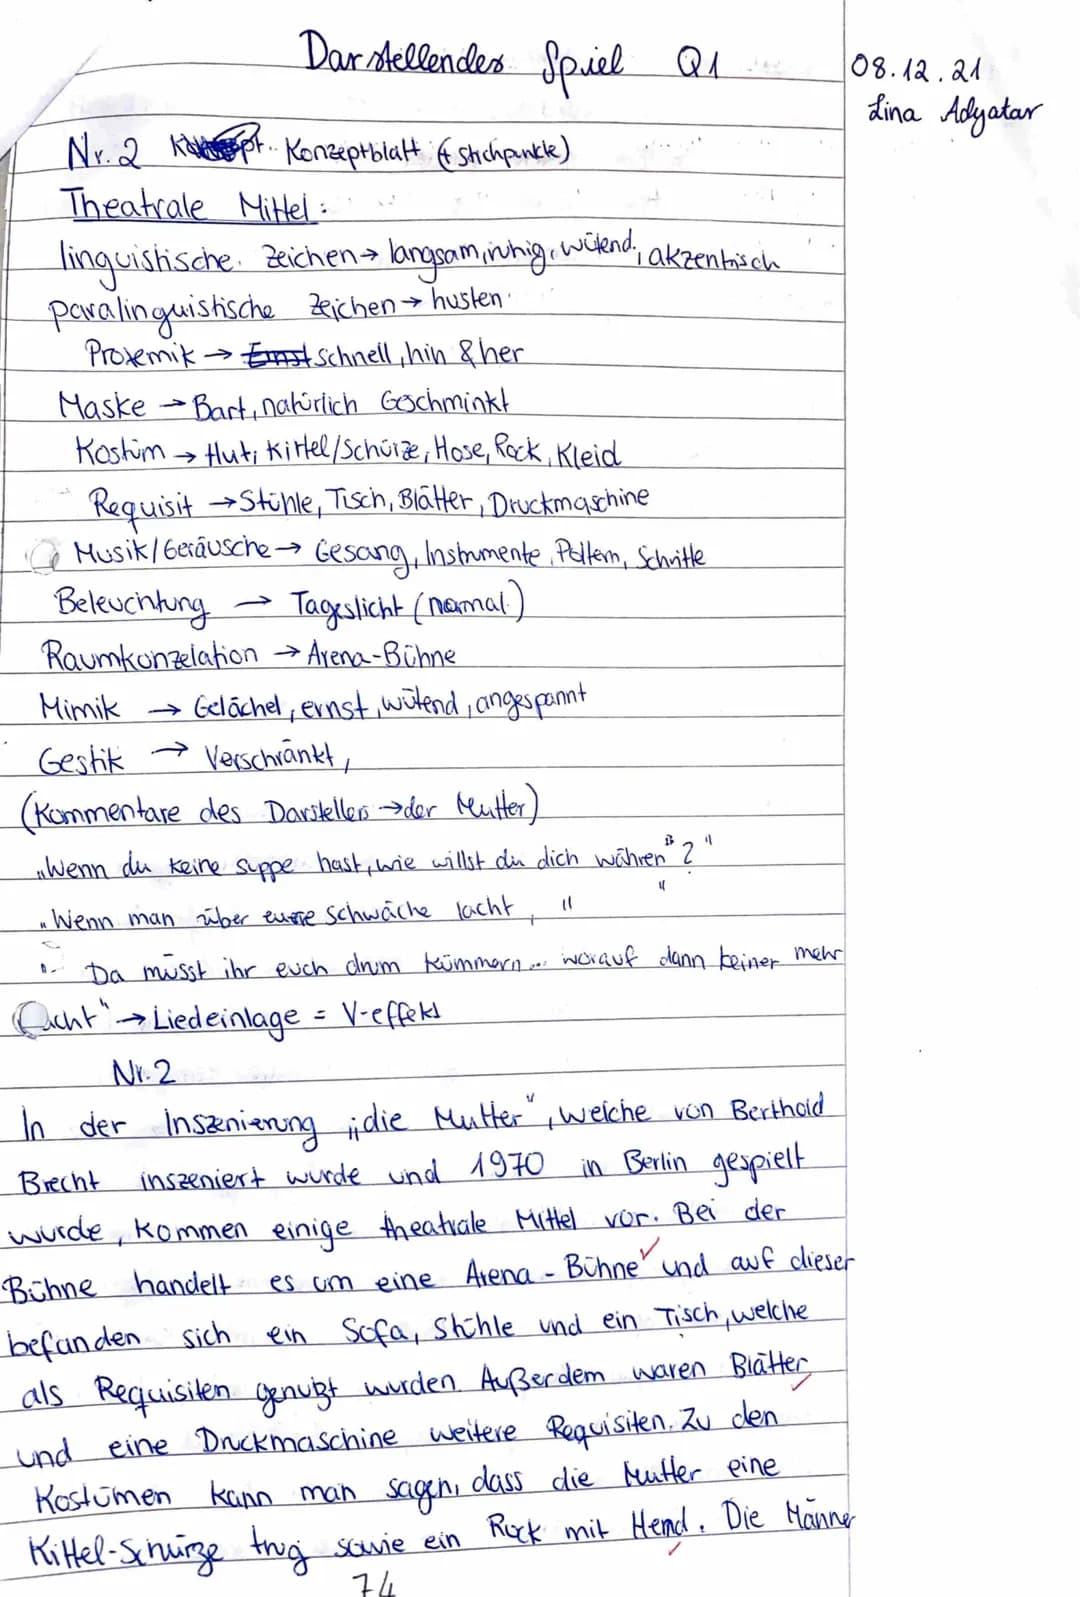 Darstellendes Spiel Q1
08.12.21
Lina Adyatar
Nr. 2 Konzeptblatt (+ Stichpunkte)
Theatrale Mittel:
linguistische Zeichen → langsam, ruhig, wütend, akzentrisch
paralinguistische Zeichen → husten
Proxemik → Ernst schnell, hin & her
Maske → Bart, natürlich Geschminkt
Kostüm → Hut, Kittel/Schürze, Hose, Rock, Kleid
Requisit → Stühle, Tisch, Blätter, Druckmaschine
Musik/Geräusche → Gesang, Instrumente, Poltern, Schritte
Beleuchtung → Tageslicht (normal)
Raumkonzelation → Arena-Bühne
Mimik → Gelächel, ernst, wütend, angespannt
Gestik → Verschränkt,
(Kommentare des Darstellers → der Mutter)
„Wenn du keine suppe hast, wie willst du dich währen"?"
„Wenn man über eure schwäche lacht, " "
"- Da müsst ihr euch drum kümmern... worauf dann keiner mehr
lacht" → Liedeinlage = V-effekt
Nr. 2
In der Inszenierung „die Mutter", welche von Berthold
Brecht inszeniert wurde und 1970 in Berlin gespielt
wurde, kommen einige theatrale Mittel vor. Bei der
Bühne handelt es um eine Arena-Bühne und auf dieser
befanden sich ein Sofa, Stühle und ein Tisch, welche
als Requisiten genutzt wurden. Außerdem waren Blätter
und eine Druckmaschine weitere Requisiten. Zu den
Kostümen kann man sagen, dass die Mutter eine
Kittel-Schürze trug sowie ein Rock mit Hemd. Die Männer
74